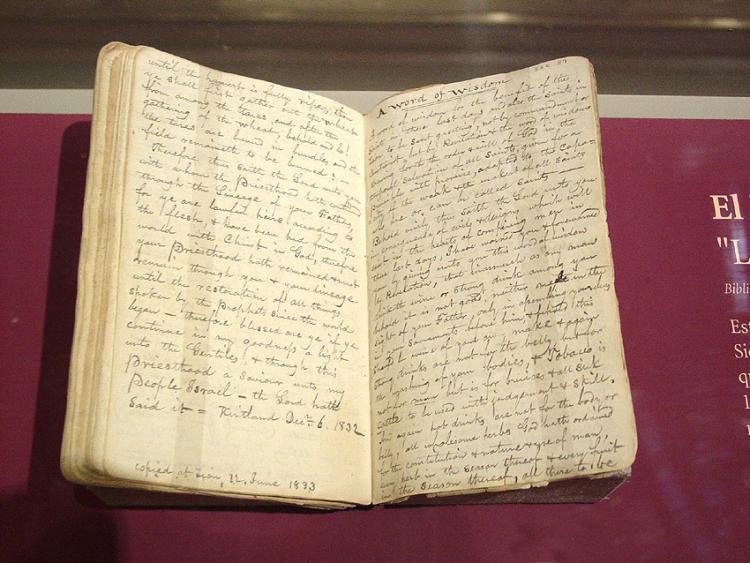 until the harvest is fully ripe, then
ye shall first gather out the wheat
from among the tares, and after the
gathering of the wheat, behold and lo!
the tares are bund in bundles and the
field remaineth to be burned:
Therefore thus saith the Lord unto you
with whom the Priesthood hath continued
through the Lineage of your Fathers
for ye are lawful heirs according to
the flesh, & have been hid from the
world with Christ in God, therefore
your Priesthood hath remained & must
remain through you & your lineage
until the restoration of all things
spoken by the Prophets since the world
began — therefore blessed are ye if ye
continue in my goodness a light
unto the Gentiles & through this
Priesthood a Saviour unto my
People Israel — the Lord hath
Said it = Kirtland Decr. 6. 1832
copied at Zion, 12, June 1833
A word of Wisdom
A word of wisdom for the benefit of the
in these last days and also the Saints in
Zion to be Sent greeting, not by commandment or
but by Revelation & the word of wisdom
Shewing forth the order & will of God in the
temporal Salvation of all Saints, given for a
Principle with promise, adapted to the Capa=
city of the weak & the weakest of all Saints
who are or can be called Saints —
Behold verily thus Saith the Lord unto you
in consequence of evils & designs which will
exist in the hearts of conspiring men in
these last days, I have warned you & forewarned
you by giving unto you this word of wisdom
by Revelation, that inasmuch as any man
drinketh wine or Strong drink among you
behold it is not good, neither in the
sight of your Father, only in assembling yourselves
Sacraments before him, &
should be wine of pure & make & again
Strong drinks are not for the belly, but for
the washing of your bodies, & Tobacco is
not for but is for bruises & all Sick
cattle to be used with judgement & Skill.
And again hot drinks are not for the body or
belly, all wholesome herbs God hath ordained
for the constitution & nature & use of man,
every herb in the Season thereof & every fruit
in the Season thereof, all these to be
El
"L
Bibli
Es
Si
q
1